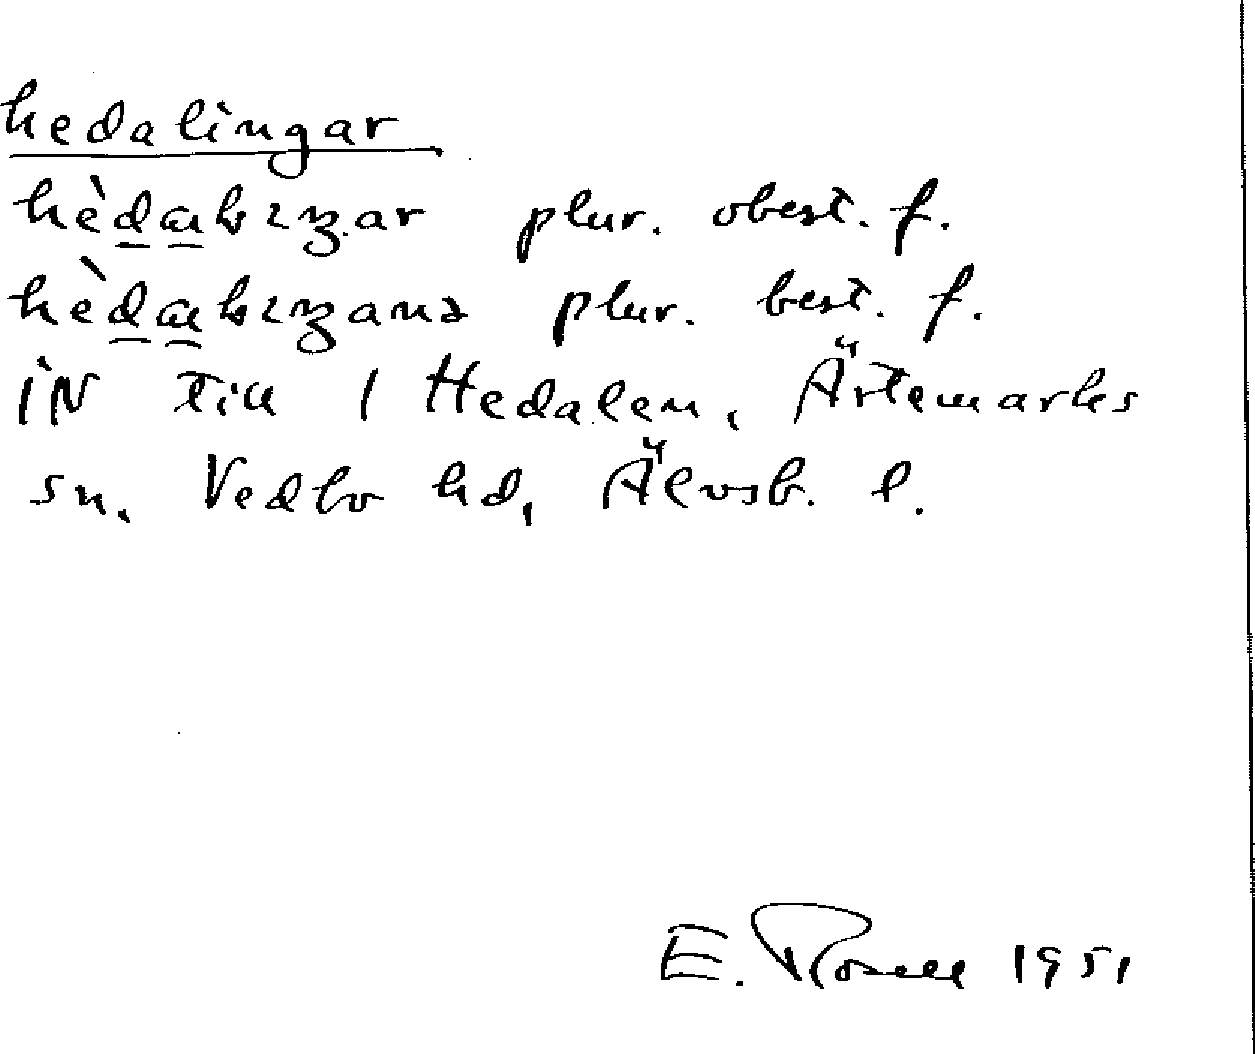 hedalingar
plur. obest. f.
plur. best. f.
IN till 1 Hedalen, Ärtemarks
sn. Vedbo hd, Älvsb. l.
E. Rosell 1951